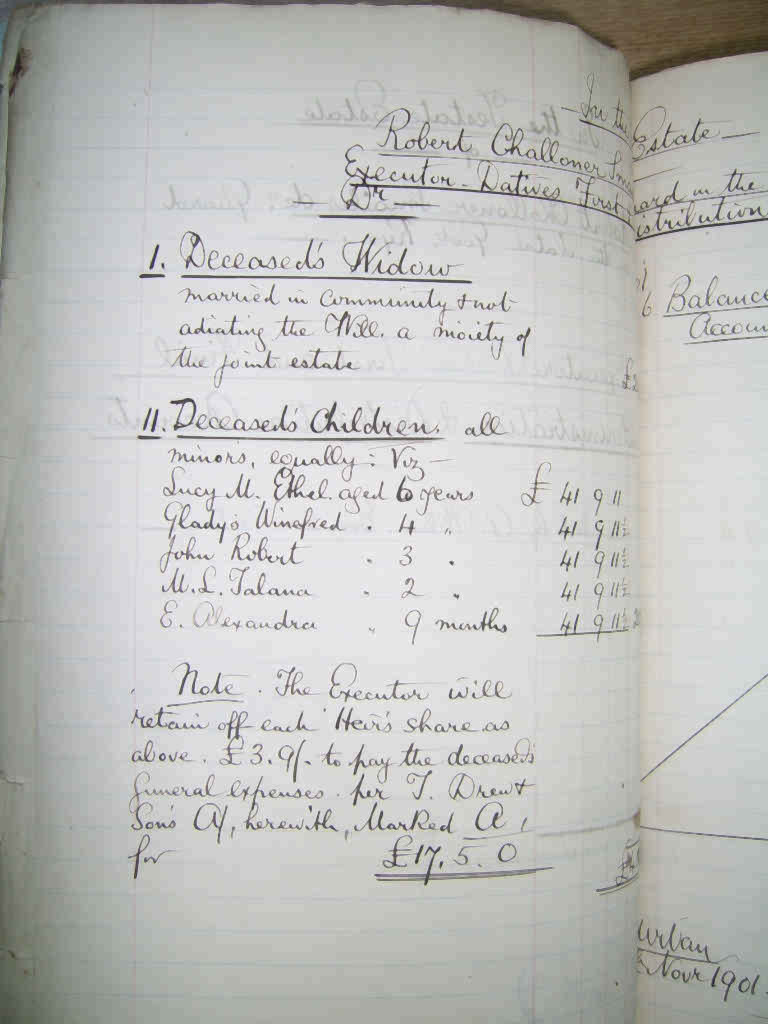 In the
Robert Challoner
Executor-Datives First
Dr
I. Deceased's Widow
married in community & not
adiating the Will. a moiety of
the joint estate
II. Deceased's Children. all
minors, equally: Viz—
Lucy M. Ethel. aged 6 years £ 41 9 11
Gladys Winefred " 4 " 41 9 11½
John Robert " 3 " 41 9 11½
M. L. Talana " 2 " 41 9 11½
E. Alexandra " 9 months 41 9 11½
Note. The Executor will
retain off each Heir's share as
above. £3.9/- to pay the deceased's
funeral expenses. per T. Drew &
Son's A/, herewith, Marked A,
for £17. 5. 0
Estate—
in the
istribution
6 Balance
Accoun
urban
Novr 1901.